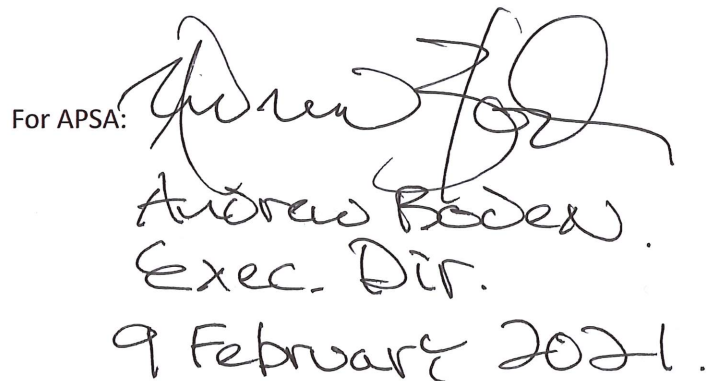 For APSA:
Andrew Boden.
Exec. Dir.
9 February 2021.